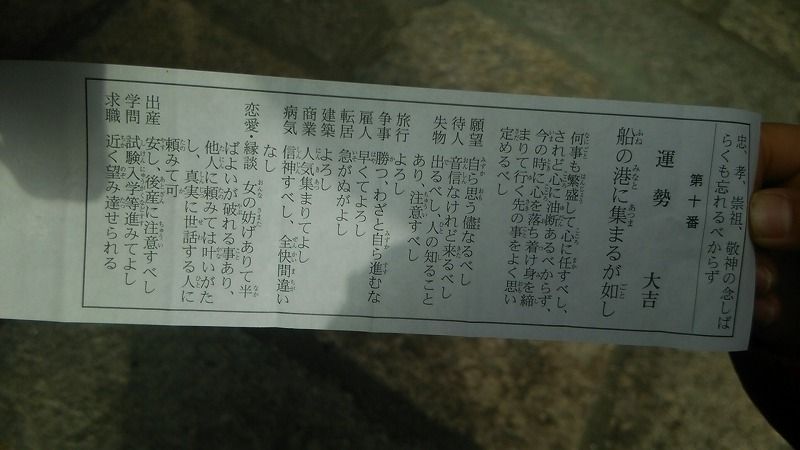 忠、孝、崇祖、敬神の念しば
らくも忘れるべからず
第十番
運勢 大吉
船の港に集まるが如し
何事も繁盛して心に任すべし、
されど心に油断あるべからず、
今の時に心を落ち着け身を締
まりて行く先の事をよく思い
定めるべし
願望 自ら思う儘なるべし
待人 音信なけれど来るべし
失物 出るべし、人の知ること
あり、注意すべし
旅行 よろし
争事 勝つ、わざと自ら進むな
雇人 早くてよろし
転居 急がぬがよし
建築 よろし
商業 人気集まりてよし
病気 信神すべし、全快間違い
なし
恋愛・縁談 女の妨げありて半
ばよいが破れる事あり、
他人に頼みては叶いがた
し、真実に世話する人に
頼みて可
出産 安し、後産に注意すべし
学問 試験入学等進みてよし
求職 近く望み達せられる